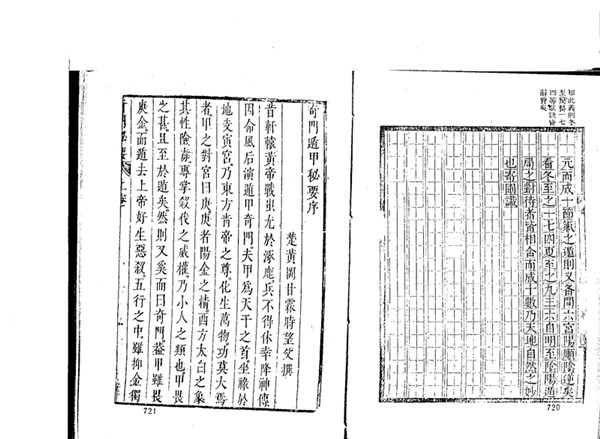 如此義則冬
至陽順一七
四等數
元而成一節氣之遁則又各閏六宮陽順陰逆矣
看冬至之一七四夏至之九三六自明至陰陽遁
局之對待者皆相合而成十數乃天地自然之妙
也寄圖識
720
奇門遁甲秘要序
楚黃岡甘霖時望父撰
昔軒轅黃帝戰蚩尤於涿鹿兵不得休幸降神傳
因命風后演遁甲奇門夫甲爲天干之首坐祿於
地支寅宮乃東方青帝之尊化生萬物功莫大焉
者甲之對宮曰庚庚者陽金之精西方太白之象
其性險毒專掌殺伐之威權乃小人之類也甲畏
之甚且至於遁矣然則又奚而曰奇門葢甲雖畏
庚金而遁去上帝好生惡殺五行之中雖抑金獨
721